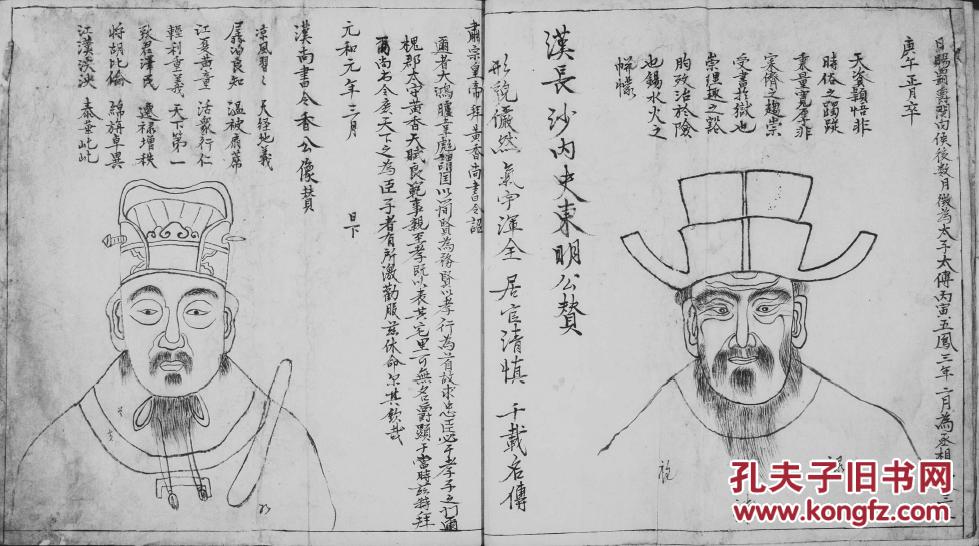 日賜爵關內侯後數月徵為太子太傅丙寅五鳳三年二月為丞相
庚午正月卒
天姿穎悟非
時俗之躅跡
秉量寬厚非
案儕之趨崇
受書於獄也
崇徑趣之谿
昫政治於險
也錫水火之
帡幪
漢長沙內史東明公贊
形貌儼然氣宇渾全居官清慎千載名傳
肅宗皇帝拜黃香尚書令詔
邇者大鴻臚韋彪謂國以簡賢為務賢以孝行為首故求忠臣必于孝子之門爾
槐郡太守黃香天賦良範事親至孝既以表其宅里可無名爵顯于當時茲特拜
爾尚書令庶天下之為臣子者有所激勸服茲休命尔其欽哉
元和元年三月 日下
漢尚書令香公像贊
凉風習習 天經地義
孱溫良知 溫被扇席
江夏黃童 活眾行仁
輕利重義 天下第一
致君澤民 逸祿增秩
將胡比倫 綿旃卓異
江漢泱泱 泰華屹屹
孔夫子旧书网
www.kongfz.com